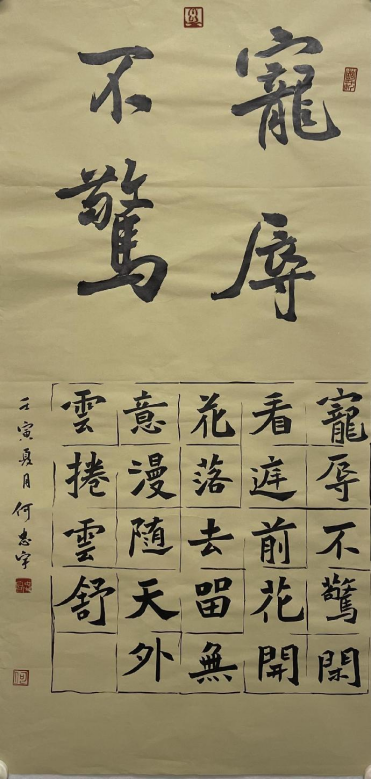 寵辱
不驚
寵辱不驚閑
看庭前花開
花落去留無
意漫隨天外
雲捲雲舒
壬寅夏月何忠宇